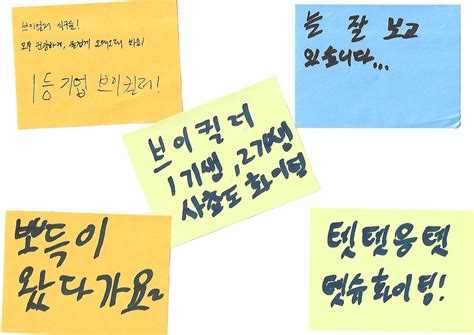 브이킬러 식구들!
모두 건강하게, 즐겁게 오래오래 봐요!
1등 기업 브이킬러!
늘 잘 보고
있습니다...
브이킬러
1기생, 2기생
사랑도 화이팅
뽀득이
왔다가요~
텟텐응텟
텟슈화이팅!